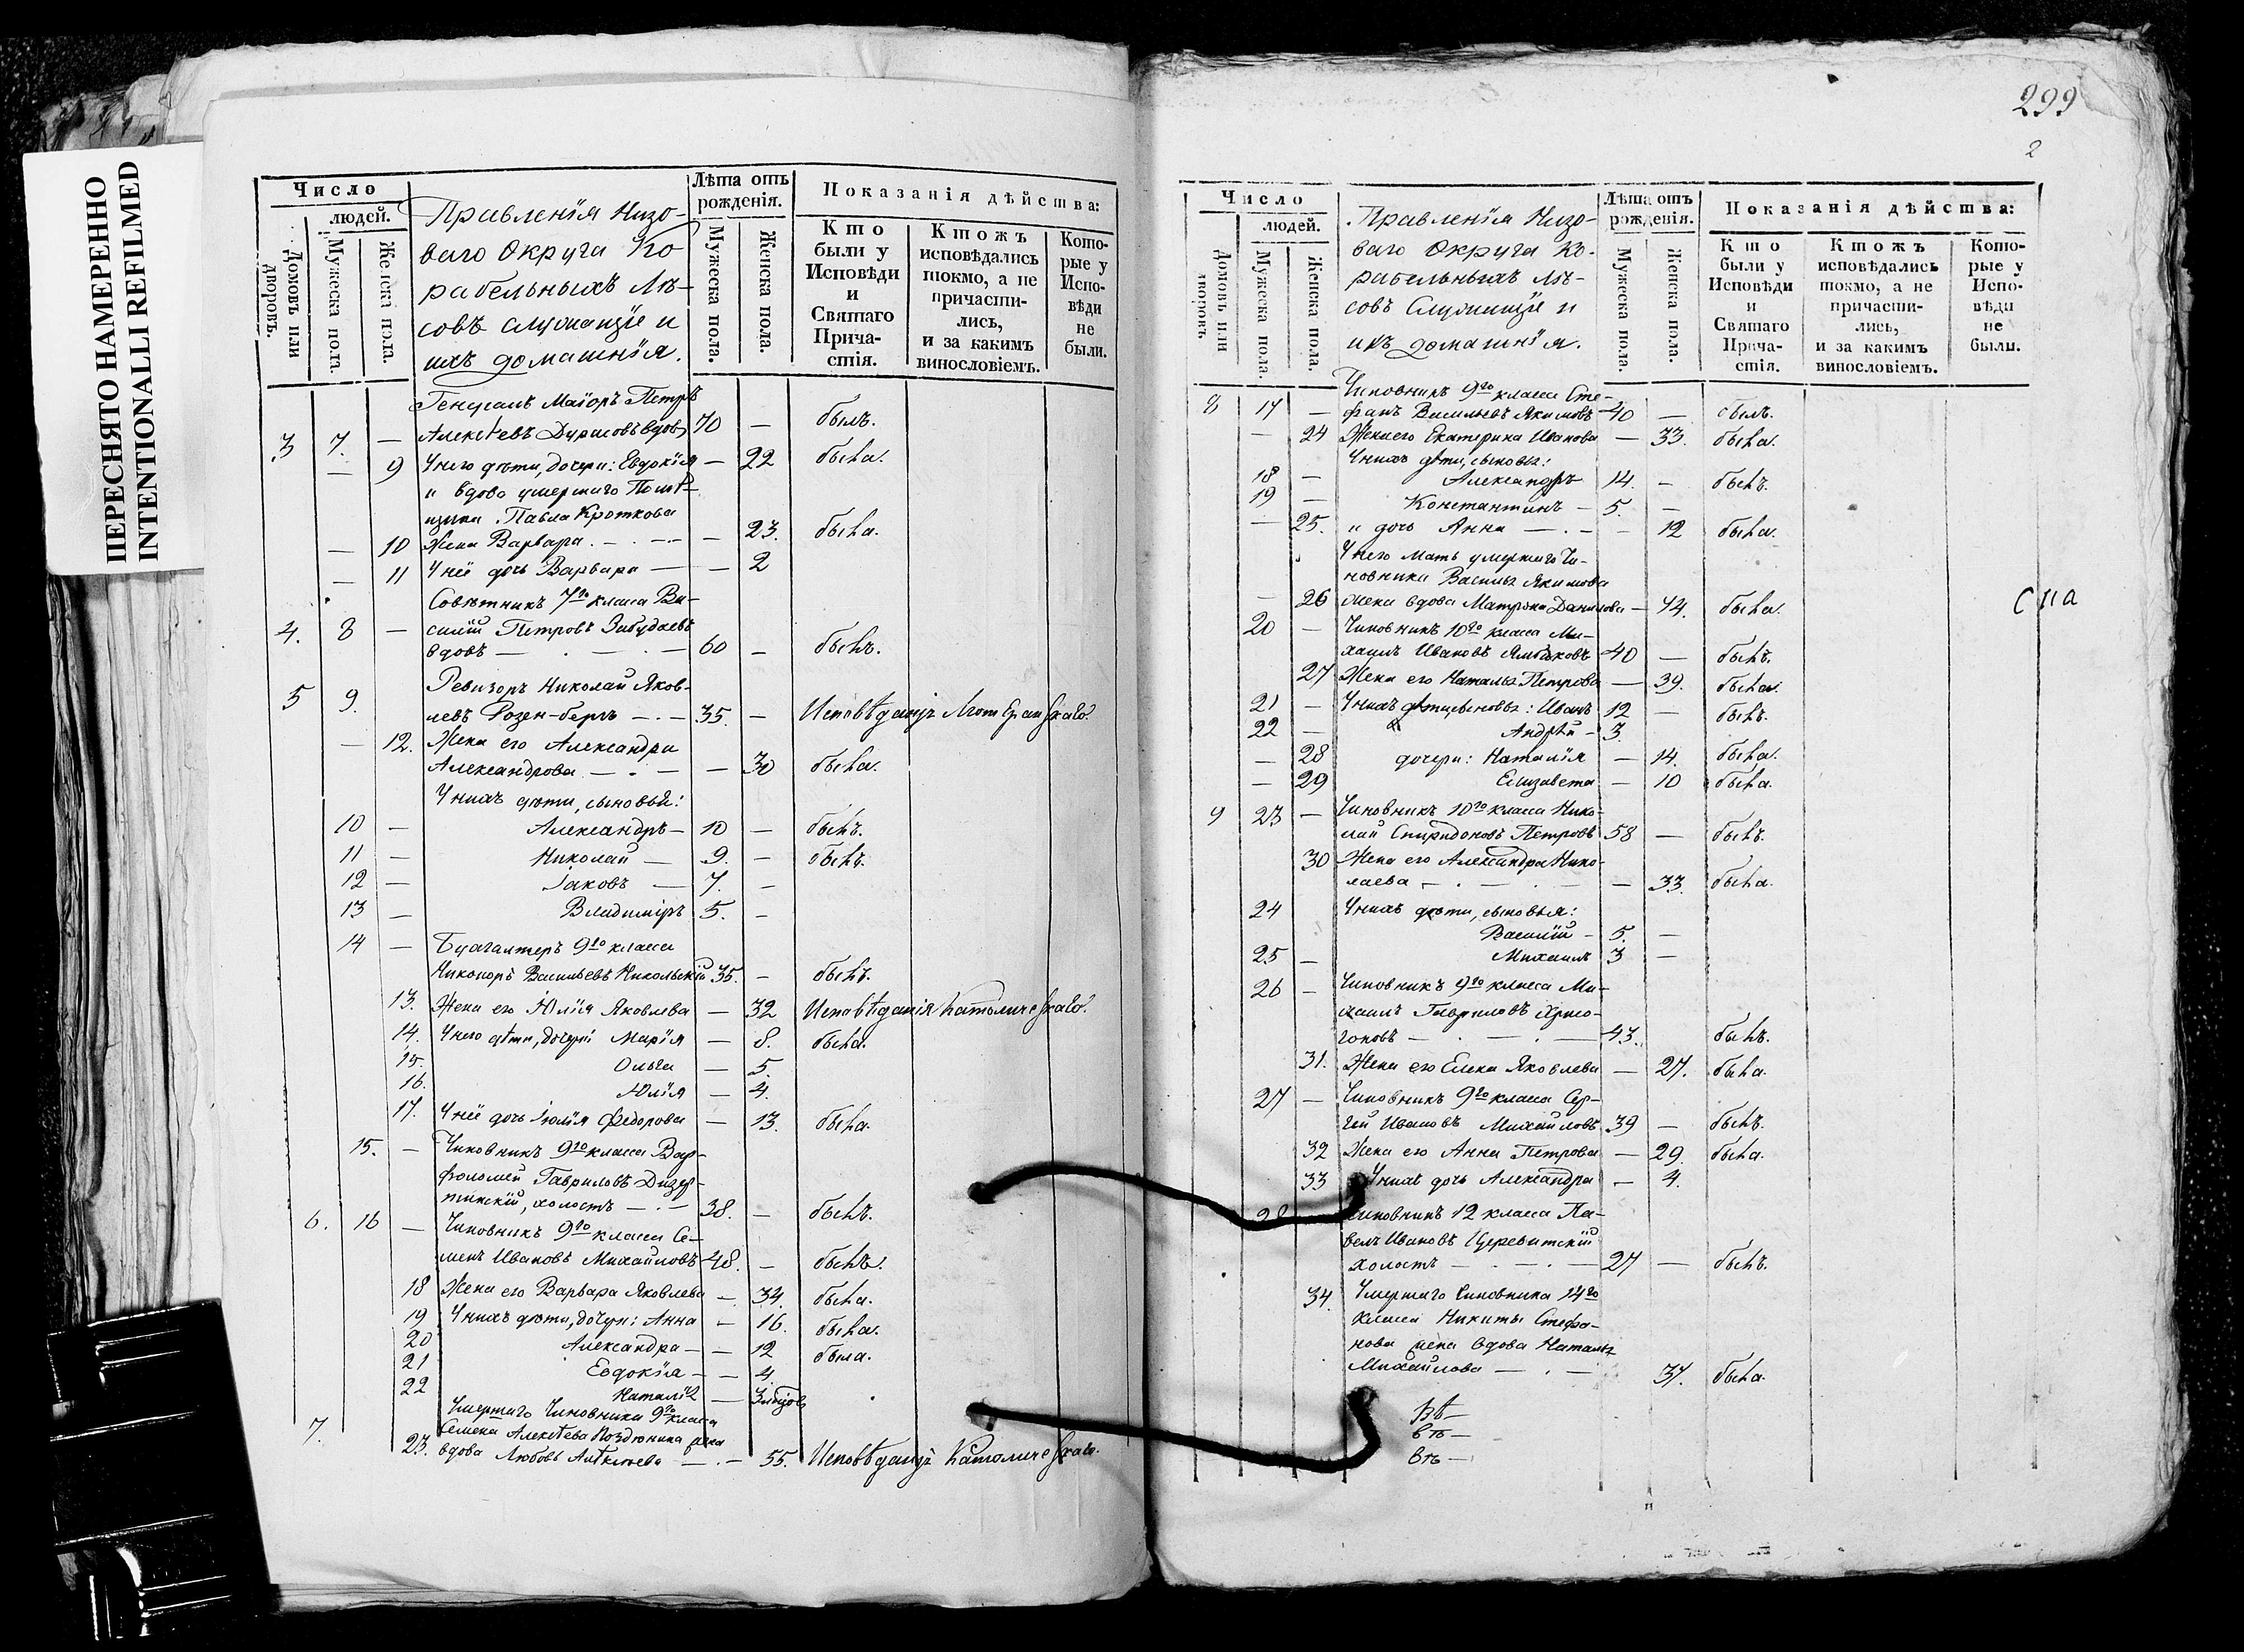 ПЕРЕСНЯТО НАМЕРЕННО
INTENTIONALLI REFILMED
Число
людей.
Домовъ или дворовъ.
Мужеска пола.
Женска пола.
Правленія Низо-
ваго Округа Ко
рабельныхъ Лѣ-
совъ служащіе и
ихъ домашнія.
Лѣта отъ рожденія.
Мужеска пола.
Женска пола.
Показанія дѣйства:
Кто были у Исповѣди и Святаго Прича-стія.
Ктожъ исповѣдались токмо, а не причасти-лись, и за какимъ винословіемъ.
Кото-рые у Испо-вѣди не были.
Генералъ Маіоръ Петръ
3 7. — Алексѣевъ вдовъ 70 — былъ.
— 9 У него дѣти, дочери: Евдокія — 22 была.
и вдова умершаго Помѣ-
щика Павла Кроткова
— 10 Жена Варвара — 23. была.
— 11 У неё дочь Варвара — 2
Совѣтникъ 7го класса Ва-
4. 8 — силій Петровъ
вдовъ — 60 — былъ.
Ревизоръ Николай Яков-
5 9. левъ Розен-бергъ — 35. — Исповѣданія Лютеранскаго.
— 12. Жена его Александра
Александрова — 30 была.
У нихъ дѣти, сыновья:
10 — Александръ — 10 — былъ.
11 — Николай — 9. — былъ.
12 — Іаковъ — 7. —
13 — Владиміръ 5. —
14 — Бухгалтеръ 9го класса
Никаноръ Васильевъ Никольскій 35. — былъ.
13. Жена его Юлія Яковлева — 32 Исповѣданія Католическаго.
14. У него дѣти, дочери Марія — 8. была.
15. Ольга — 5.
16. Юлія — 4.
17. У неё дочь Іюлія Федорова — 13. была.
15. — Чиновникъ 9го класса Вар-
фоломей Гавриловъ
холостъ — 38. — былъ.
6. 16 — Чиновникъ 9го класса Се-
менъ Ивановъ Михайловъ 48. — былъ.
18 Жена его Варвара Яковлева — 34. была.
19 У нихъ дѣти, дочери: Анна — 16. была.
20 Александра — 12 была.
21 Евдокія — 4.
22 Наталія —
Умершаго Чиновника 9го класса
7. Семена Алексѣева жена
23. вдова Любовь Алексѣева — 55. Исповѣданія Католическаго.
299
2
Число
людей.
Домовъ или дворовъ.
Мужеска пола.
Женска пола.
Правленія Низо-
ваго Округа Ко-
рабельныхъ Лѣ-
совъ Служащіе и
ихъ домашнія.
Лѣта отъ рожденія.
Мужеска пола.
Женска пола.
Показанія дѣйства:
Кто были у Исповѣди и Святаго Прича-стія.
Ктожъ исповѣдались токмо, а не причасти-лись, и за какимъ винословіемъ.
Кото-рые у Испо-вѣди не были.
Чиновникъ 9го класса Сте-
8 17 — фанъ Васильевъ Якимовъ 40 — былъ.
— 24 Жена его Екатерина Иванова — 33. была.
У нихъ дѣти, сыновья:
18 — Александръ 14. — былъ.
19 — Константинъ — 5. —
— 25. и дочь Анна — 12 была.
У него мать умершаго Чи-
новника Василья Якимова
— 26 жена вдова Матрона Данилова — 74. была.
20 — Чиновникъ 10го класса Ми-
хаилъ Ивановъ 40 — былъ.
27 Жена его Наталья Петрова — 39. была.
21 — У нихъ дѣти, сыновья: Иванъ 12 — былъ.
22 — Андрѣй — 3.
— 28 дочери: Наталія — 14. была.
— 29 Елизавета — 10 была.
9 23 — Чиновникъ 10го класса Нико-
лай Спиридоновъ Петровъ 58 — былъ.
30 Жена его Александра Нико-
лаева — 33. была.
24 У нихъ дѣти, сыновья:
Василій — 5. —
25 — Михаилъ 3 —
26 — Чиновникъ 9го класса Ми-
хаилъ Гавриловъ Хрисо-
гоновъ — 43. былъ.
31. Жена его Елена Яковлева — 27. была.
27 — Чиновникъ 9го класса Сер-
гѣй Ивановъ Михайловъ 39 — былъ.
32 Жена его Анна Петрова — 29. была.
33 У нихъ дочь Александра — 4.
28 Чиновникъ 12 класса Па-
велъ Ивановъ
холостъ — 27 — былъ.
34. Умершаго Чиновника 14го
класса Никиты Стефа-
нова жена вдова Наталья
Михайлова — 37. была.